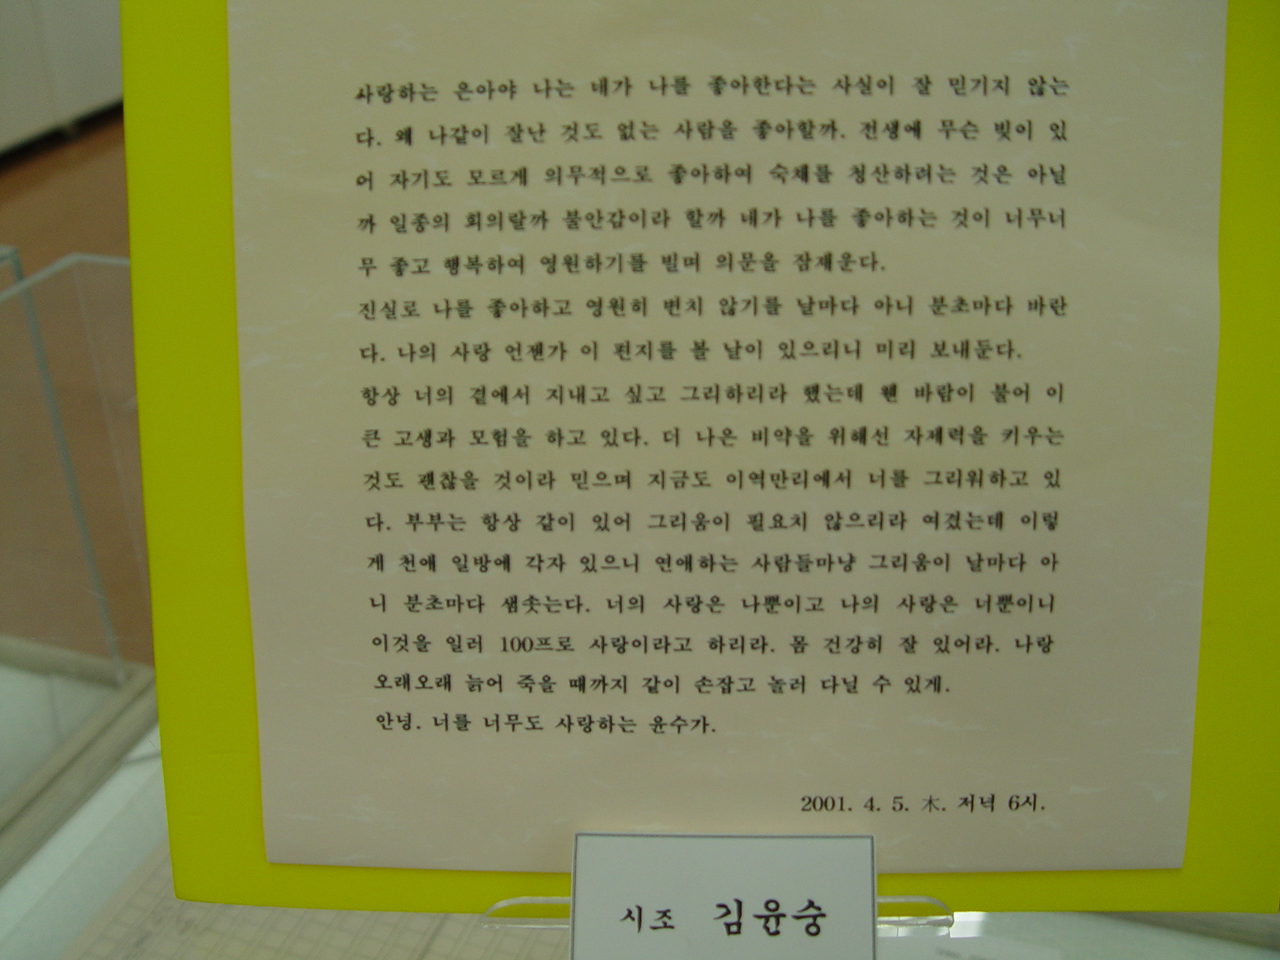 사랑하는 은아야 나는 네가 나를 좋아한다는 사실이 잘 믿기지 않는
다. 왜 나같이 잘난 것도 없는 사람을 좋아할까. 전생에 무슨 빚이 있
어 자기도 모르게 의무적으로 좋아하여 숙채를 청산하려는 것은 아닐
까 일종의 회의랄까 불안감이라 할까 네가 나를 좋아하는 것이 너무너
무 좋고 행복하여 영원하기를 빌며 의문을 잠재운다.
진실로 나를 좋아하고 영원히 변치 않기를 날마다 아니 분초마다 바란
다. 나의 사랑 언젠가 이 편지를 볼 날이 있으리니 미리 보내둔다.
항상 너의 곁에서 지내고 싶고 그리하리라 했는데 웬 바람이 불어 이
큰 고생과 모험을 하고 있다. 더 나은 비약을 위해선 자제력을 키우는
것도 괜찮을 것이라 믿으며 지금도 이역만리에서 너를 그리워하고 있
다. 부부는 항상 같이 있어 그리움이 필요치 않으리라 여겼는데 이렇
게 천애 일방에 각자 있으니 연애하는 사람들마냥 그리움이 날마다 아
니 분초마다 샘솟는다. 너의 사랑은 나뿐이고 나의 사랑은 너뿐이니
이것을 일러 100프로 사랑이라고 하리라. 몸 건강히 잘 있어라. 나랑
오래오래 늙어 죽을 때까지 같이 손잡고 놀러 다닐 수 있게.
안녕. 너를 너무도 사랑하는 윤수가.
2001. 4. 5. 木. 저녁 6시.
시조 김윤숭